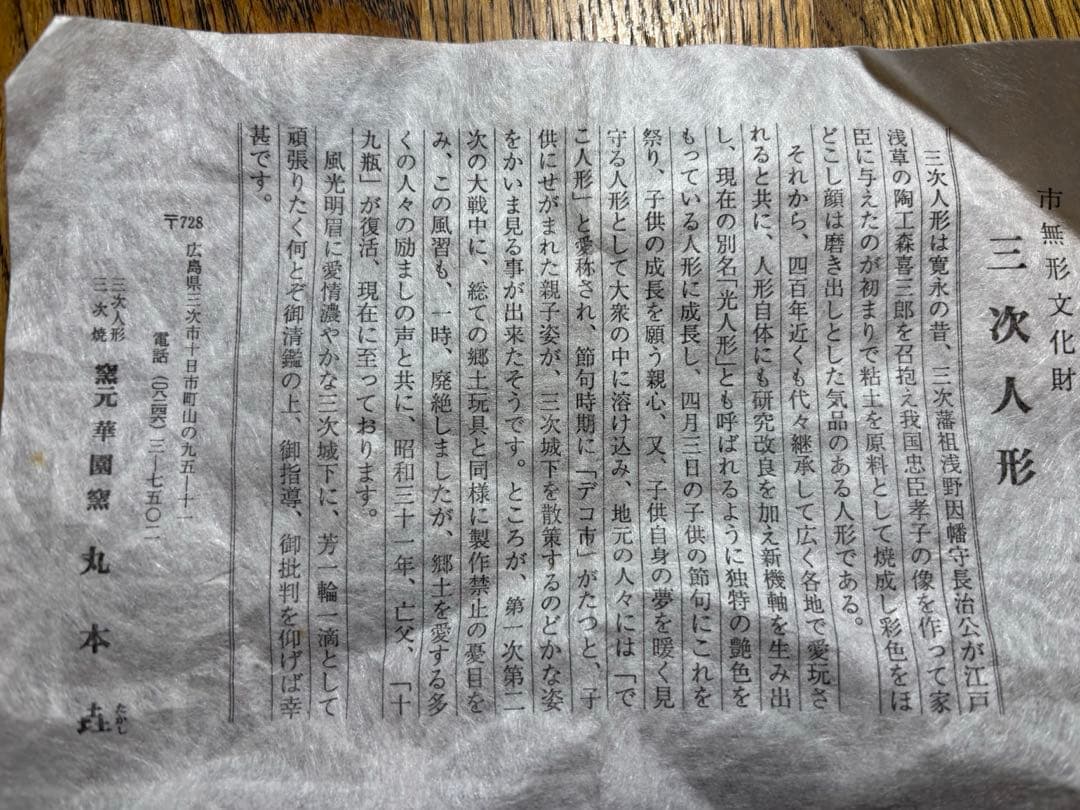 市無形文化財
三次人形
三次人形は寛永の昔、三次藩祖浅野因幡守長治公が江戸
浅草の陶工森喜三郎を召抱え我国忠臣孝子の像を作って家
臣に与えたのが初まりで粘土を原料として焼成し彩色をほ
どこし顔は磨き出しとした気品のある人形である。
それから、四百年近くも代々継承して広く各地で愛玩さ
れると共に、人形自体にも研究改良を加え新機軸を生み出
し、現在の別名「光人形」とも呼ばれるように独特の艶色を
もっている人形に成長し、四月三日の子供の節句にこれを
祭り、子供の成長を願う親心、又、子供自身の夢を暖く見
守る人形として大衆の中に溶け込み、地元の人々には「で
こ人形」と愛称され、節句時期に「デコ市」がたつと、子
供にせがまれた親子姿が、三次城下を散策するのどかな姿
をかいま見る事が出来たそうです。ところが、第一次第二
次の大戦中に、総ての郷土玩具と同様に製作禁止の憂目を
み、この風習も、一時、廃絶しましたが、郷土を愛する多
くの人々の励ましの声と共に、昭和三十一年、亡父、「十
九瓶」が復活、現在に至っております。
風光明眉に愛情濃やかな三次城下に、芳一輪一滴として
頑張りたく何とぞ御清鑑の上、御指導、御批判を仰げば幸
甚です。
〒728 広島県三次市十日市町山の九五―十一
電話(〇八二四六)三―七五〇二
三次人形
三次焼
窯元華園窯 丸本垚
たかし